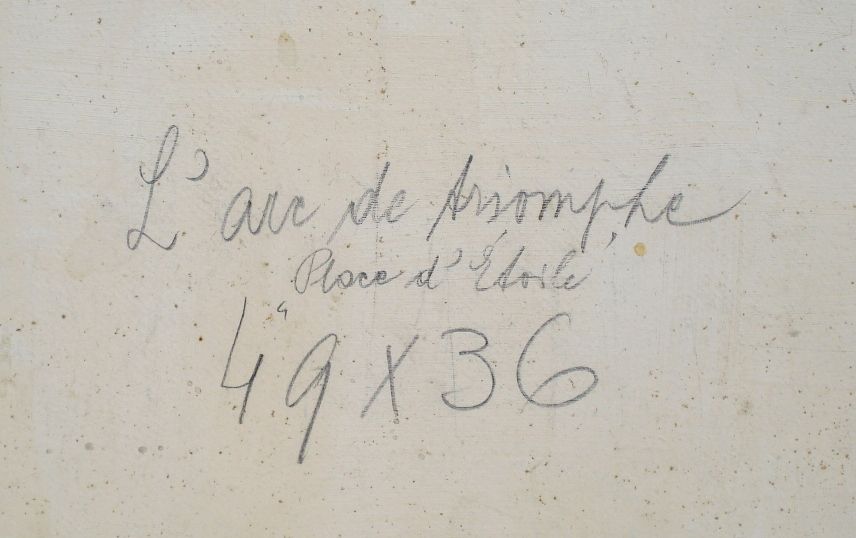 L' arc de triomphe
Place d' Étoile
49 x 36